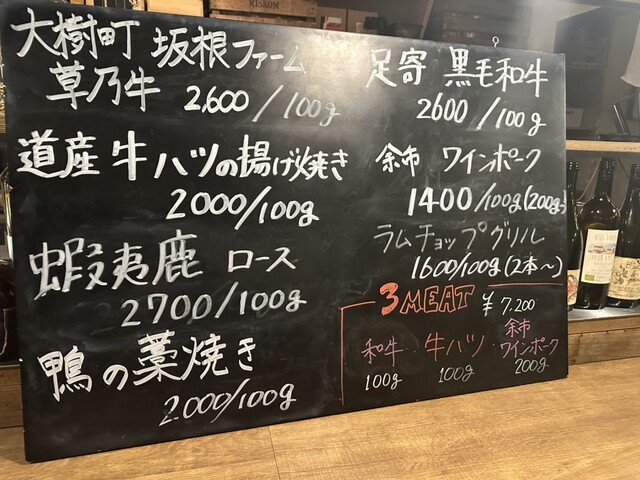 大樹町 坂根ファーム
草乃牛 2,600/100g
道産牛ハツの揚げ焼き
2000/100g
蝦夷鹿 ロース
2700/100g
鴨の藁焼き
2000/100g
足寄 黒毛和牛
2600/100g
余市 ワインポーク
1400/100g(200g~)
ラムチョップグリル
1600/100g(2本~)
3 MEAT ¥7.200
和牛 100g
牛ハツ 100g
余市 ワインポーク 200g
RISKOM